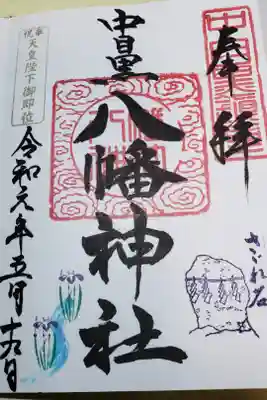 奉拝
さざれ石
八幡神社
奉祝
天皇陛下御即位
令和元年五月十九日